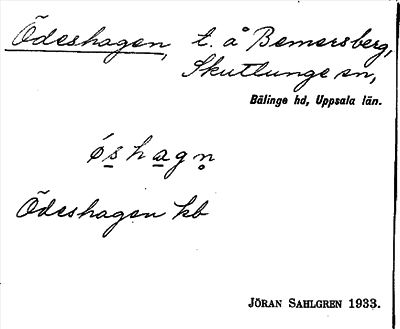 Ödeshagen, t. å Bemersberg,
Skuttunge sn,
Bälinge hd, Uppsala län.
ǿs̲ha̲gn̥
Ödeshagen kb
JÖRAN SAHLGREN 1933.